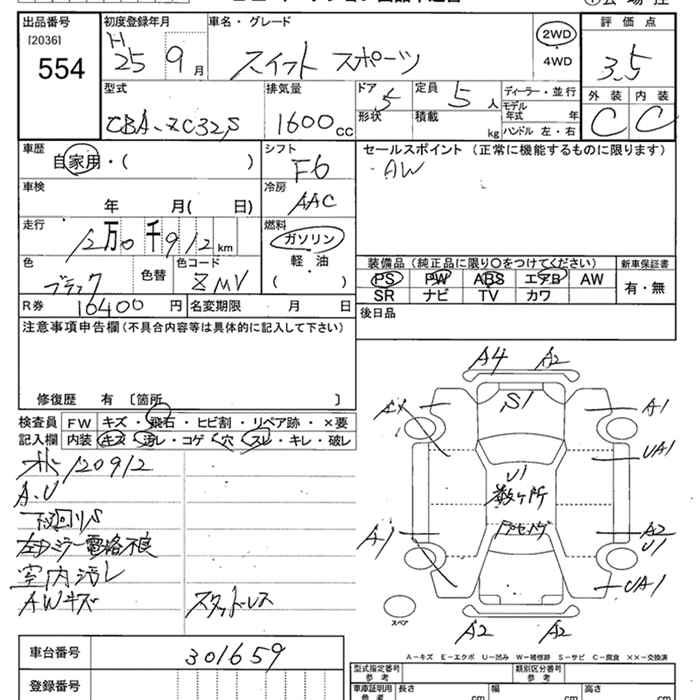 出品番号
[2036]
554
初度登録年月
H 25 9 月
車名・グレード
スイフト スポーツ
2WD
・
4WD
評価点
3.5
外装 内装
C C
型式
CBA-ZC32S
排気量
1600 cc
ドア 5
形状
定員 5 人
積載 kg
ディーラー・並行
モデル
年式 年
ハンドル 左・右
車歴
自家用・( )
シフト
F6
セールスポイント (正常に機能するものに限ります)
・AW
車検
年 月( 日)
冷房
AAC
走行
12万0千912 km
燃料
ガソリン
軽・油
( )
色
ブラック
色替
色コード
ZMV
装備品 (純正品に限り〇をつけてください)
PS PW ABS エアB AW
SR ナビ TV カワ
新車保証書
有・無
R券 16400 円
名変期限 月 日
後日品
注意事項申告欄 (不具合内容等は具体的に記入して下さい)
修復歴 有 〔箇所 〕
検査員
記入欄
FW キズ・飛石・ヒビ割・リペア跡・×要
内装 キズ・汚レ・コゲ・穴・スレ・キレ・破レ
120912
A.U
下回りS
左ドミラー電格不良
室内汚レ
AWキズ
スタッドレス
A4 A2
S1
A1 A1
UA1
U1
数ヶ所
A1 A2
U1
UA1
スペア
A2 A2
A-キズ E-エクボ U-凹み W-補修跡 S-サビ C-腐食 ××-交換済
車台番号
301659
登録番号
型式指定番号
参考
類別区分番号
参考
車庫証明用
参考
長さ cm
幅 cm
高さ cm